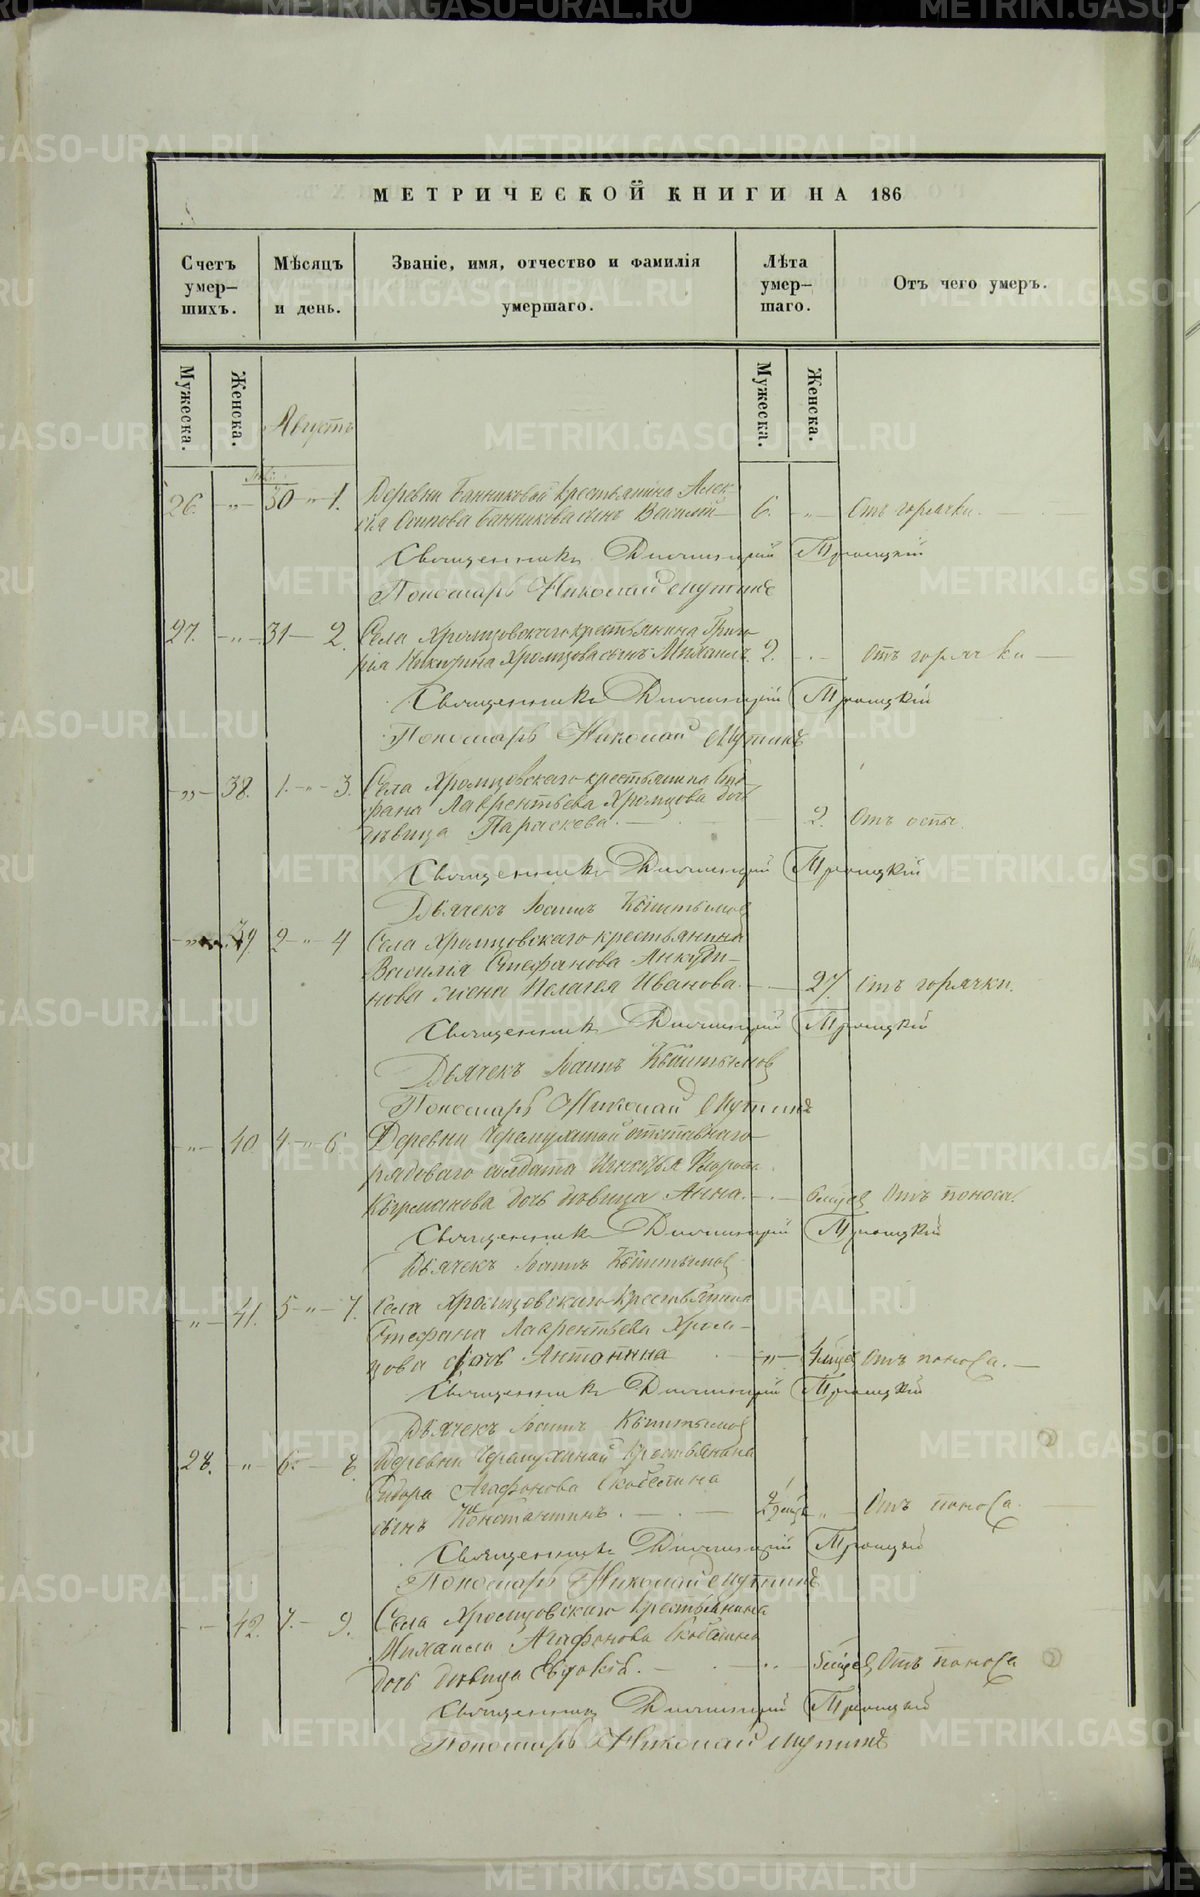 МЕТРИЧЕСКОЙ КНИГИ НА 186
Счетъ умер-
шихъ.
Мѣсяцъ
и день.
Званіе, имя, отчество и фамилія
умершаго.
Лѣта
умер-
шаго.
Отъ чего умеръ.
Мужеска.
Женска.
Августъ
Мужеска.
Женска.
26. " 30 " 1. Деревни Банниковой крестьянина Алек-
сія Осипова Банникова сынъ Василій 6. " Отъ горячки.
Священникъ Димитрій Троицкій
Пономарь Николай
27. " 31 2. Села Хромцовскаго крестьянина Григо-
рія Никифорова Хромцова сынъ Михаилъ 2. Отъ горячки
Священникъ Димитрій Троицкій
Пономарь Николай
" 38. 1. " 3. Села Хромцовскаго крестьянина Сте-
фана Лаврентьева Хромцова дочь
дѣвица Параскева. 2. Отъ оспы.
Священникъ Димитрій Троицкій
Дьячекъ Іоаннъ Кыштымов
" 39. 2 " 4 Села Хромцовскаго крестьянина
Василія Стефанова Анкуди-
нова жена Пелагея Иванова. 27 Отъ горячки.
Священникъ Димитрій Троицкій
Дьячекъ Іоаннъ Кыштымов
Пономарь Николай
" 40 4. " 6 Деревни отставнаго
рядоваго солдата Игнатья
дочь дѣвица Анна. 6 мѣсяц Отъ поноса.
Священникъ Димитрій Троицкій
Дьячекъ Іоаннъ Кыштымов
" 41. 5 " 7. Села Хромцовскаго крестьянина
Стефана Лаврентьева Хром-
цова дочь Антонина " Отъ поноса.
Священникъ Димитрій Троицкій
Дьячекъ Іоаннъ Кыштымов
28. " 6. 8. Деревни крестьянина
Сидора Агафонова Скобелина
сынъ Константинъ. " Отъ поноса.
Священникъ Димитрій Троицкій
Пономарь Николай
42. 7. 9. Села Хромцовскаго крестьянина
Михаила Агафонова Скобелина
дочь дѣвица Евдокія. 5 мѣсяц Отъ поноса
Священникъ Димитрій Троицкій
Пономарь Николай
METRIKI.GASO-URAL.RU